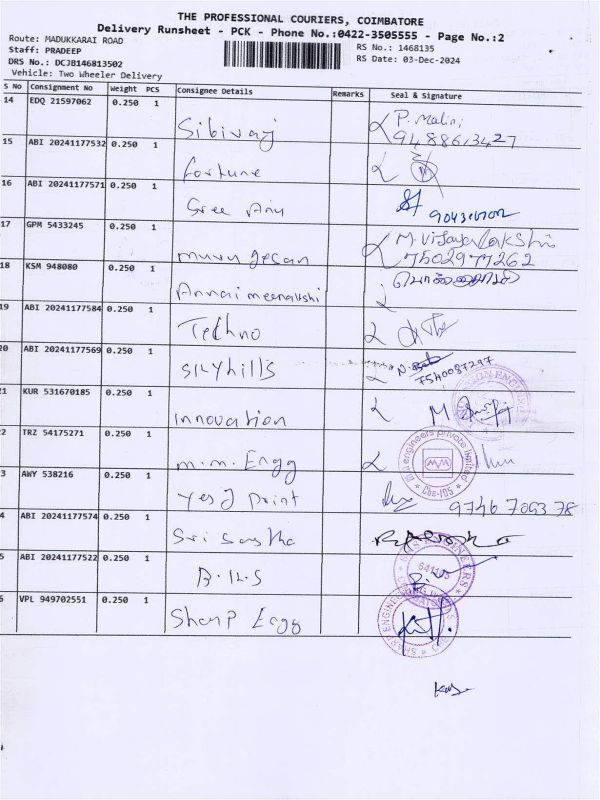 THE PROFESSIONAL COURIERS, COIMBATORE
Delivery Runsheet - PCK - Phone No.:0422-3505555 - Page No.:2
Route: MADUKKARAI ROAD
RS No.: 1468135
Staff: PRADEEP
RS Date: 03-Dec-2024
DRS No.: DCJB146813502
Vehicle: Two Wheeler Delivery
S No Consignment No Weight PCS Consignee Details Remarks Seal & Signature
14 EDQ 21597062 0.250 1 Sibivraj P. Malini
9488613427
15 ABI 20241177532 0.250 1 fortune
16 ABI 20241177571 0.250 1 Sree Anu
17 GPM 5433245 0.250 1 muru gesan M. Vijayalakshmi
7502977262
18 KSM 948080 0.250 1 Annai meenakshi
19 ABI 20241177584 0.250 1 Techno
20 ABI 20241177569 0.250 1 skyhills
7540087297
1 KUR 531670185 0.250 1 innovation
2 TRZ 54175271 0.250 1 m.m. Engg
engineers private limited
Cbe-105
3 AWY 538216 0.250 1 Yes J print 9746709378
4 ABI 20241177574 0.250 1 Sri Sastha
5 ABI 20241177522 0.250 1 B.H.S
6 VPL 949702551 0.250 1 Sharp Engg